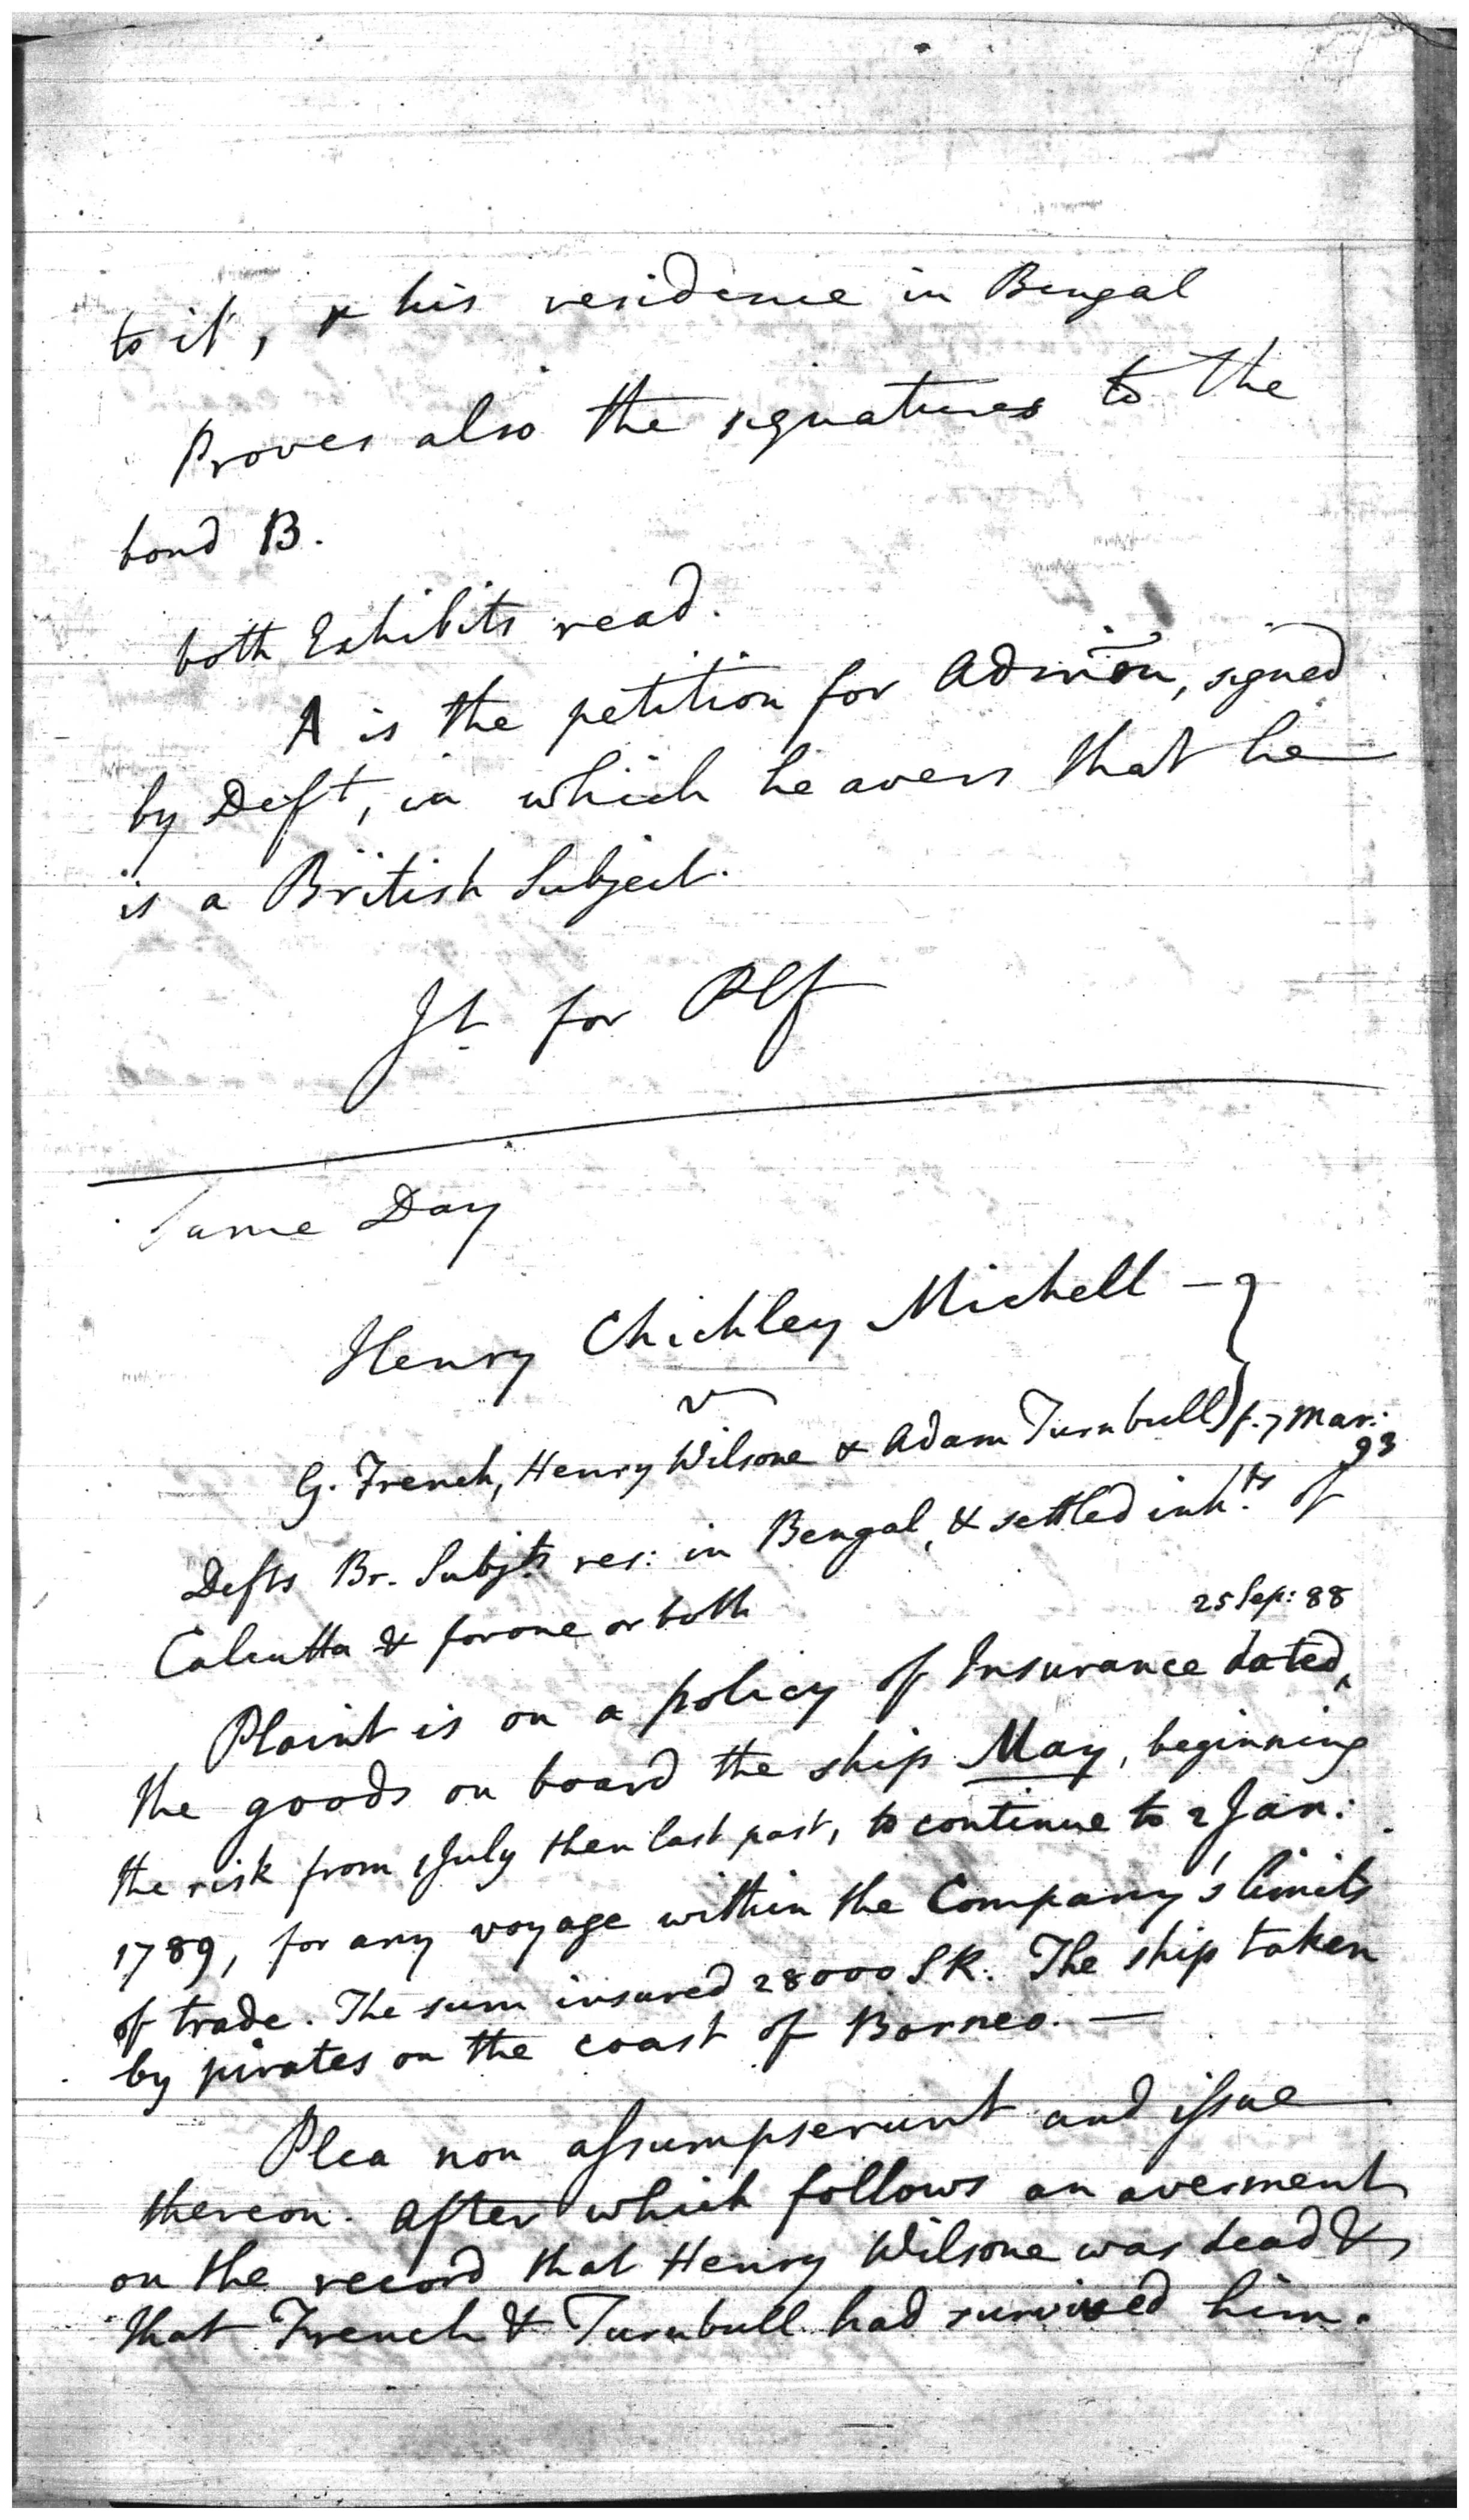 to it, & his residence in Bengal
Proves also the signatures to the
bond B.
both Exhibits read.
A is the petition for Admõn, signed
by Deft, in which he avers that he
is a British Subject.
Jt. for Plf
Same Day
Henry Chichley Michell —
v
G. French, Henry Wilsone & Adam Turnbull } f. 7 Mar: 93
Defts Br. Subjts res: in Bengal, & settled inhts. of
Calcutta & for one or both
25 Sep: 88
Plaint is on a policy of Insurance dated^
the goods on board the ship May, beginning
the risk from 1 July then last past, to continue to 2 Jan:
1789, for any voyage within the Company's limits
of trade. The sum insured 28000 SR. The ship taken
by pirates on the coast of Borneo. —
Plea non assumpserunt and issue
thereon. After which follows an averment
on the record that Henry Wilsone was dead &
that French & Turnbull had survived him.